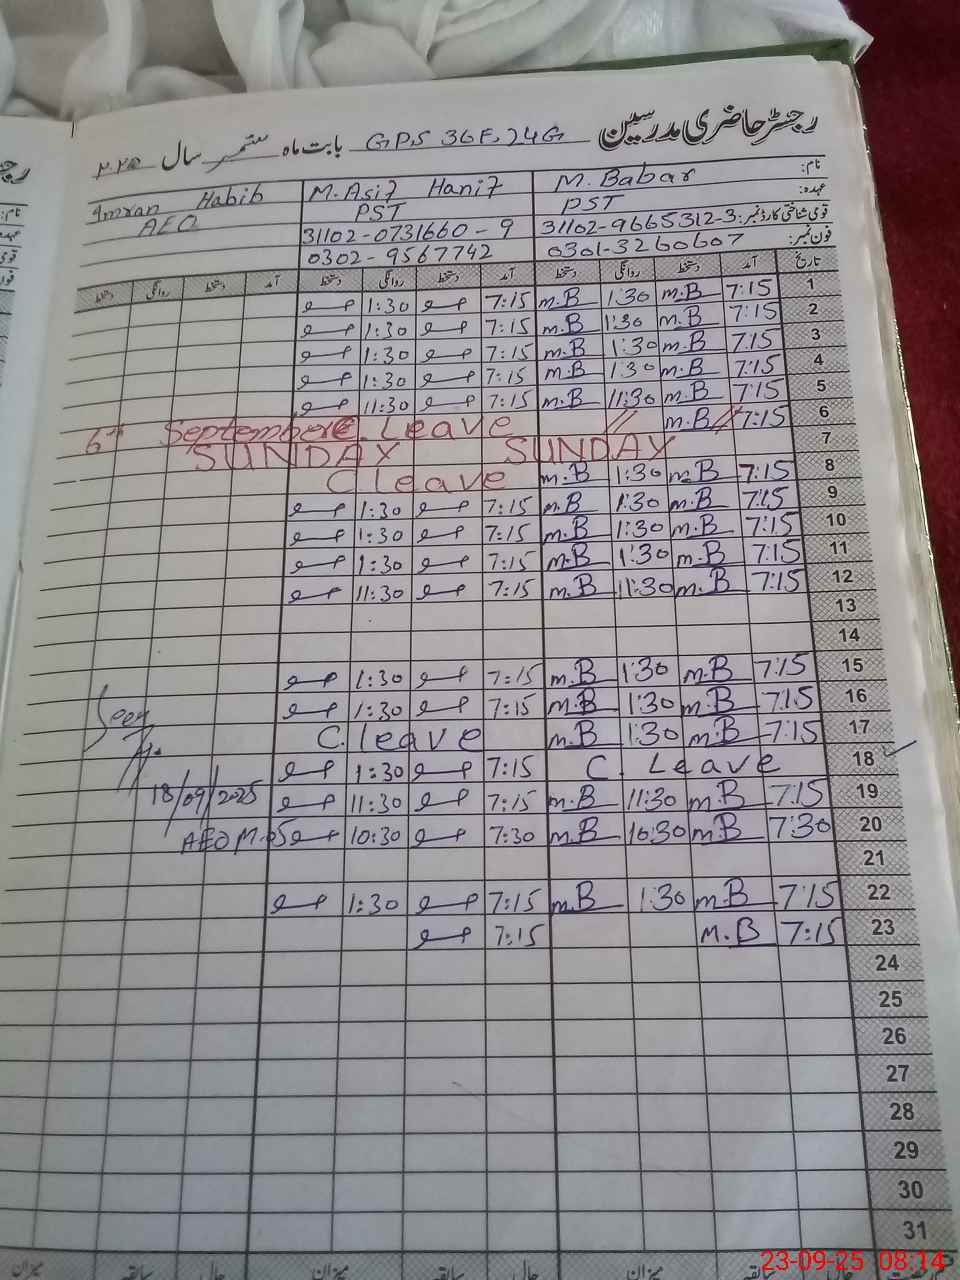 رجسٹر حاضری مدرسین GPS 36F, 24G بابت ماہ ستمبر سال
نام: M. Babar M. Asif Hanif Imran Habib
عہدہ: PST PST AEO
قومی شناختی کارڈ نمبر: 31102-9665312-3 31102-0731660-9
فون نمبر: 0301-3260607 0302-9567742
تاریخ آمد دستخط روانگی دستخط آمد دستخط روانگی دستخط آمد دستخط روانگی دستخط
1 7:15 M.B 1:30 M.B 7:15 1:30
2 7:15 M.B 1:30 M.B 7:15 1:30
3 7:15 M.B 1:30 M.B 7:15 1:30
4 7:15 M.B 1:30 M.B 7:15 1:30
5 7:15 M.B 11:30 M.B 7:15 11:30
6 7:15 M.B 6th September. Leave
7 SUNDAY SUNDAY
8 7:15 M.B 1:30 M.B C leave
9 7:15 M.B 1:30 M.B 7:15 1:30
10 7:15 M.B 1:30 M.B 7:15 1:30
11 7:15 M.B 1:30 M.B 7:15 1:30
12 7:15 M.B 11:30 M.B 7:15 11:30
13
14
15 7:15 M.B 1:30 M.B 7:15 1:30
16 7:15 M.B 1:30 M.B 7:15 1:30 Seen
17 7:15 M.B 1:30 M.B C. leave
18 C. Leave 7:15 1:30
19 7:15 M.B 11:30 M.B 7:15 11:30 18/09/2025
20 7:30 M.B 10:30 M.B 7:30 10:30 AEO
21
22 7:15 M.B 1:30 M.B 7:15 1:30
23 7:15 M.B 7:15
24
25
26
27
28
29
30
31
میزان میزان
23-09-25 08:14